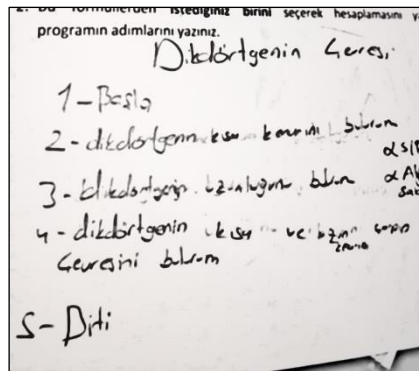 2. Bu formüllerden istediğiniz birini seçerek hesaplamasını y
programın adımlarını yazınız.
Dikdörtgenin Çevresi
1-Başla
2-dikdörtgenin kısa kenarını bulurum
3-Dikdörtgenin uzunluğunu bulun
4-dikdörtgenin kısa ve uzun
Çevresini bulurum
5-Biti